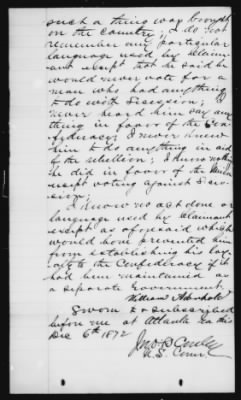 such a thing was brought
on the country; I do not
remember any particular
language used by claim-
ant except that he said he
would never vote for a
man who had anything
to do with secession; I
never heard him say any
thing in favor of the Con-
federacy; I never knew
him to do anything in aid
of the rebellion; I know nothing
he did in favor of the Union
except voting against Seces-
sion;
I know no act done or
language used by claimant
except as aforesaid which
would have prevented him
from establishing his loy-
alty to the Confederacy if it
had been maintained as
a separate Government
William
Sworn to & subscribed
before me at Atlanta Ga this
Dec 6th 1872
U.S. Comr